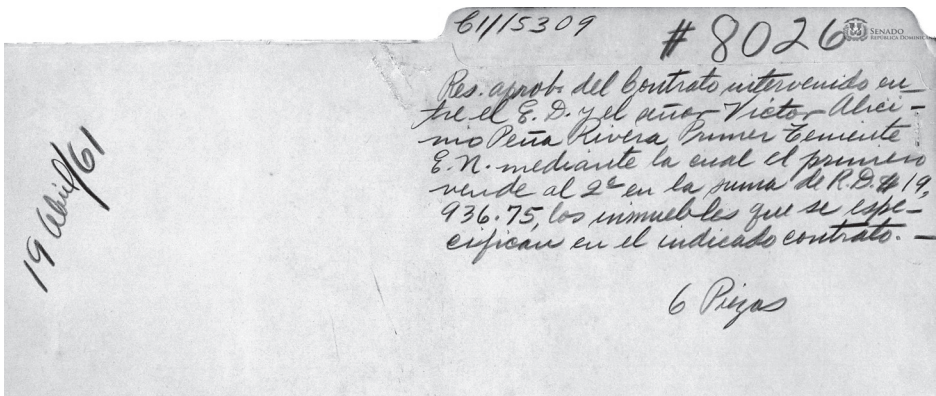 61/15309
#8026
SENADO
REPÚBLICA DOMINICANA
Res. aprob. del Contrato intervenido en-
tre el E. D. y el señor Víctor Alici-
nio Peña Rivera Primer Teniente
E. N. mediante la cual el primero
vende al 2º en la suma de R.D.$19,
936.75, los inmuebles que se espe-
cifican en el indicado contrato. —
6 Piezas
19 Abril/61